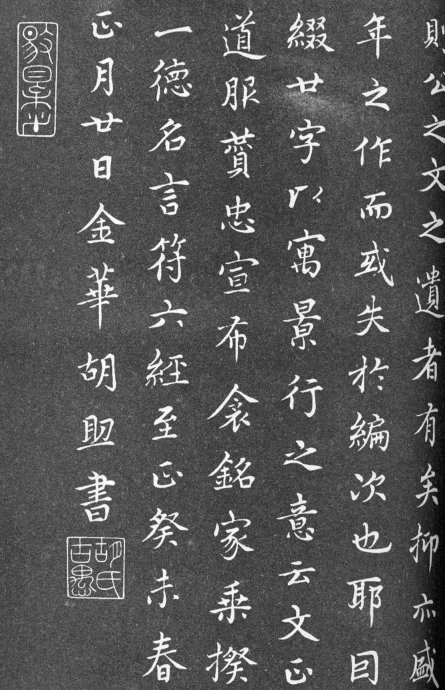 則公之文之遺者有矣抑亦盛
年之作而或失於編次也耶囙
綴廿字以寓景行之意云文正
道服贊忠宣布衾銘家乘揆
一德名言符六經至正癸未春
正月廿日金華胡助書
胡氏古愚